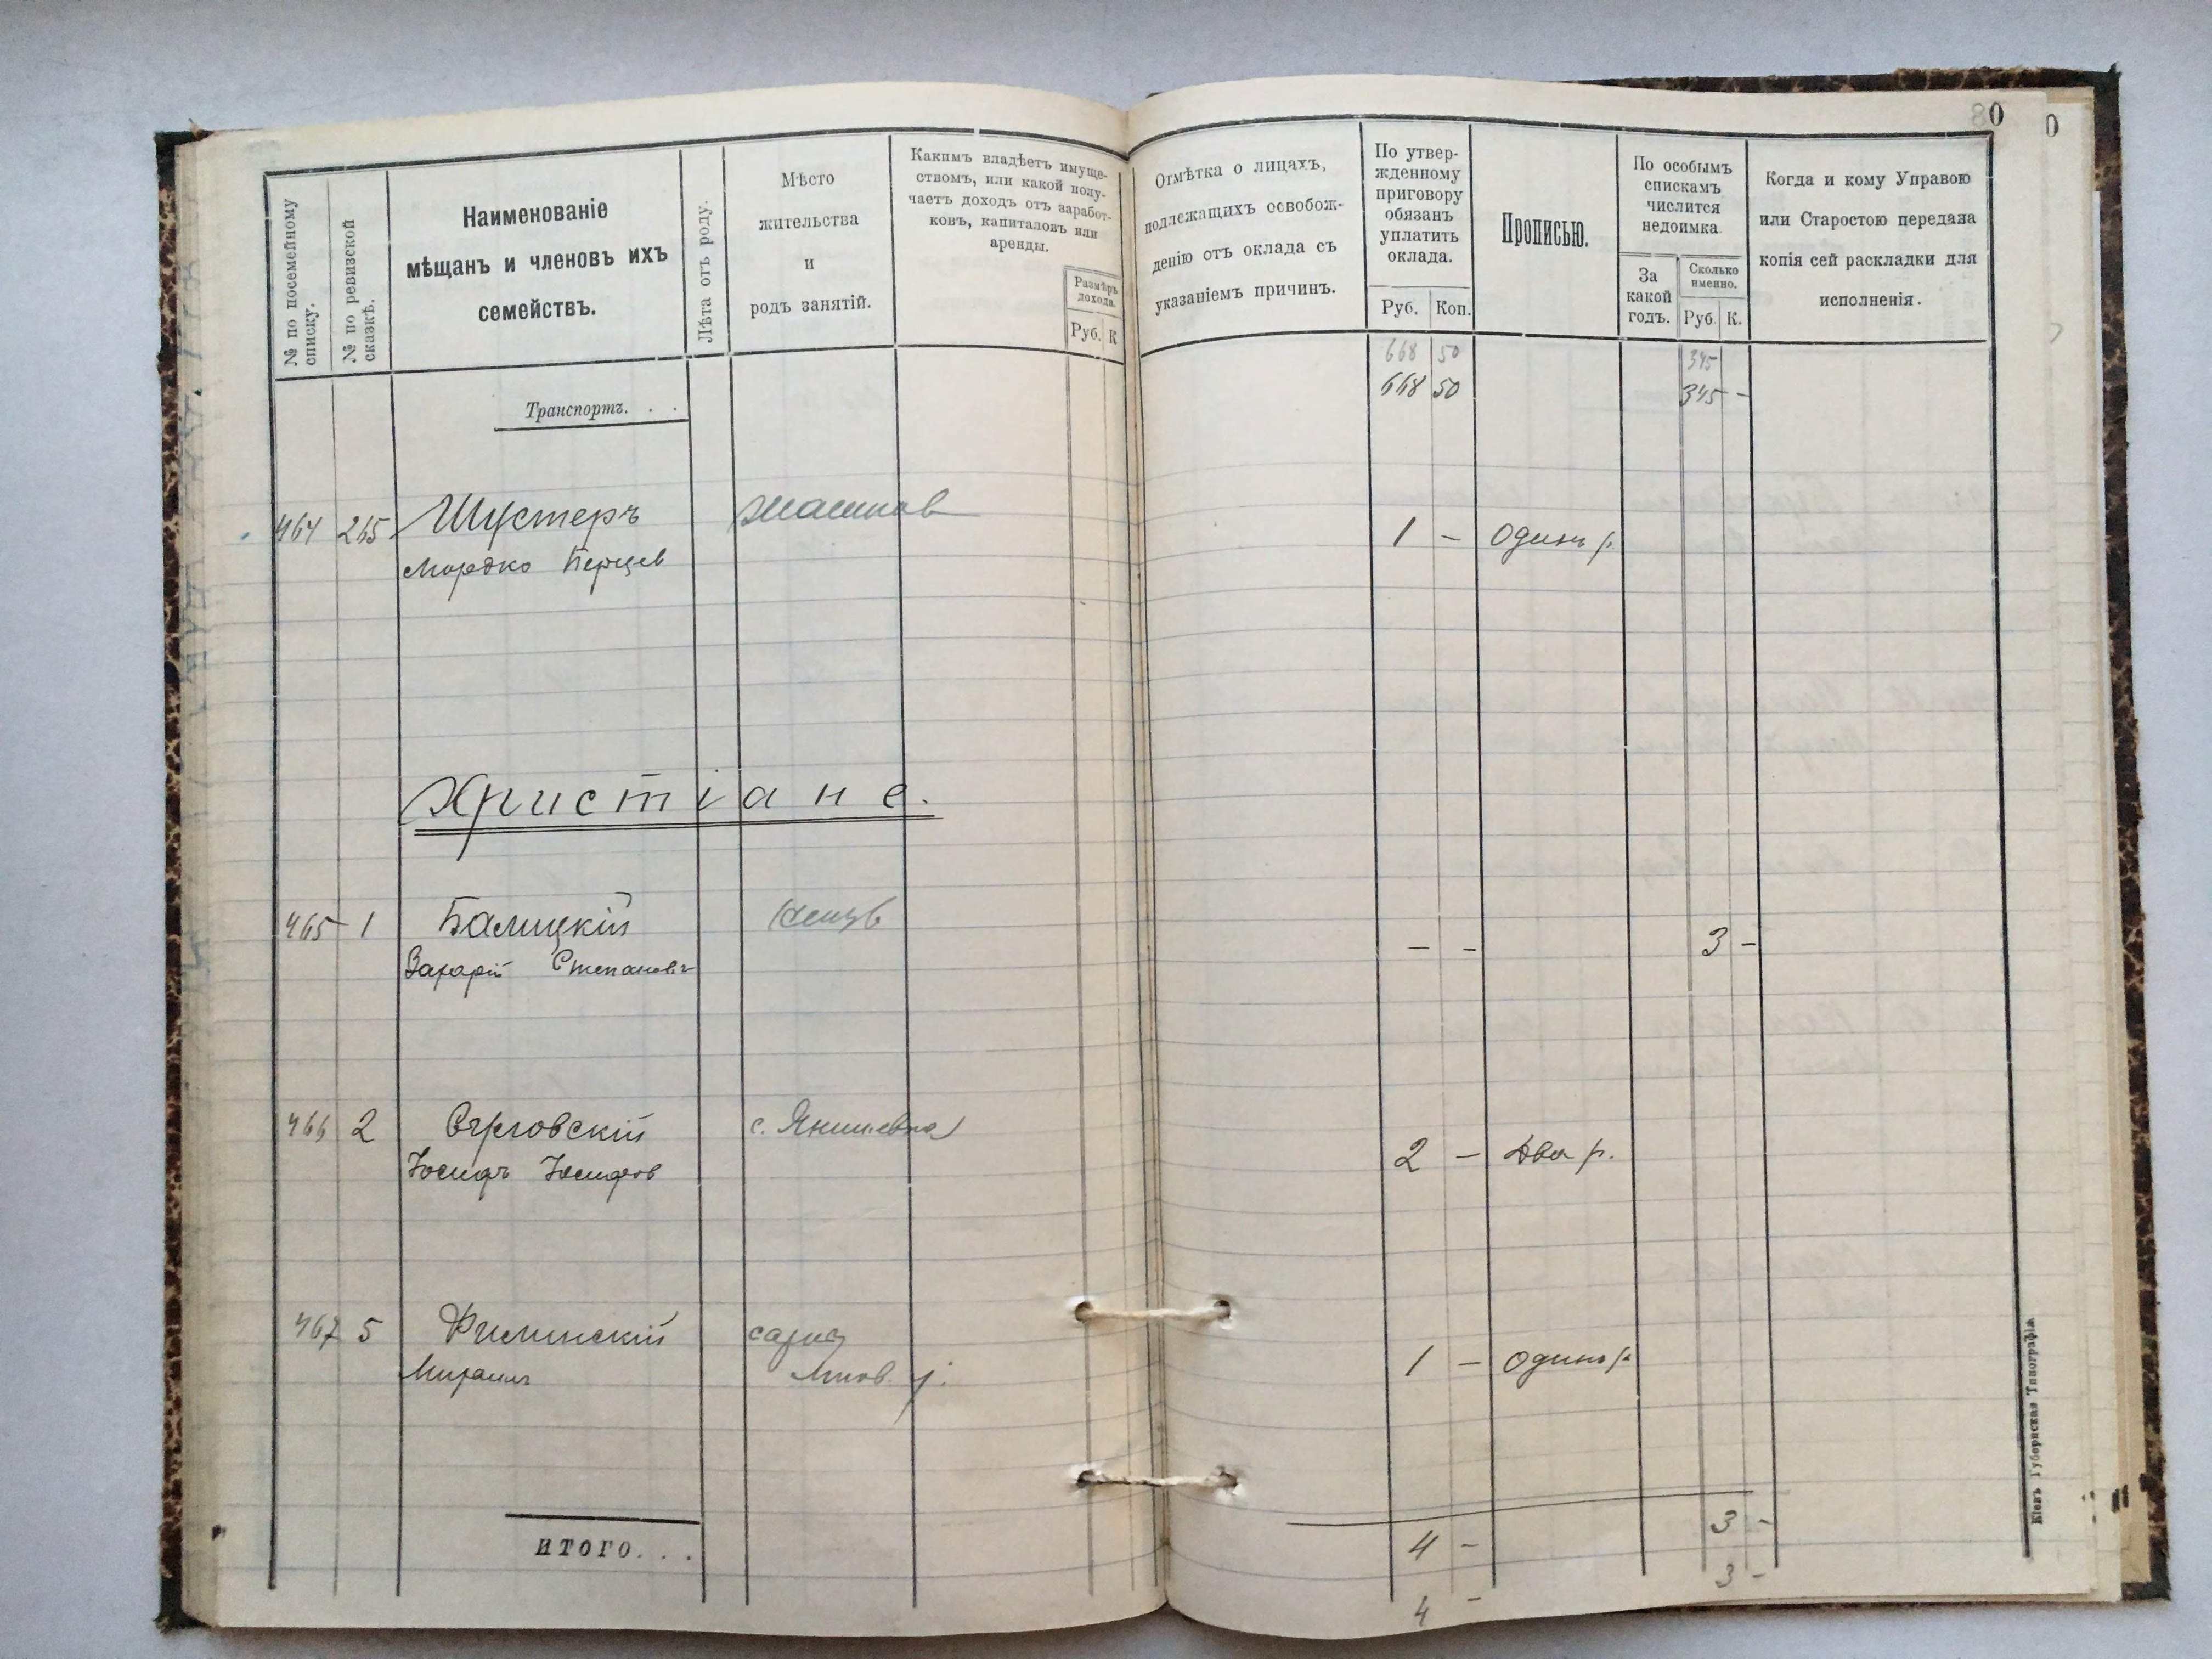 80
0
№ по посемейному
списку.
№ по ревизской
сказкѣ.
Наименованіе
мѣщанъ и членовъ ихъ
семействъ.
Лѣта отъ роду.
Мѣсто
жительства
и
родъ занятій.
Какимъ владѣетъ имуще-
ствомъ, или какой полу-
чаетъ доходъ отъ заработ-
ковъ, капиталовъ или
аренды.
Размѣръ
дохода.
Руб. К
Отмѣтка о лицахъ,
подлежащихъ освобож-
денію отъ оклада съ
указаніемъ причинъ.
По утвер-
жденному
приговору
обязанъ
уплатить
оклада.
Руб. Коп.
Прописью.
По особымъ
спискамъ
числится
недоимка.
За
какой
годъ.
Сколько
именно.
Руб. К.
Когда и кому Управою
или Старостою передана
копія сей раскладки для
исполненія.
668 50 345
Транспортъ. . . 668 50 345 -
464 265 Шустеръ 1 - Одинъ р.
Мордко Перцев
Христіане.
465 1 Балицкій - - 3 -
Захарій Степановъ
466 2 с. Янишевка 2 - Два р.
Іосифъ Іосифов
467 5 Филинскій 1 - Одинъ р.
Михаилъ
ИТОГО. . . 4 - 3 -
4 - 3 -
Кіевъ Губернская Типографія.